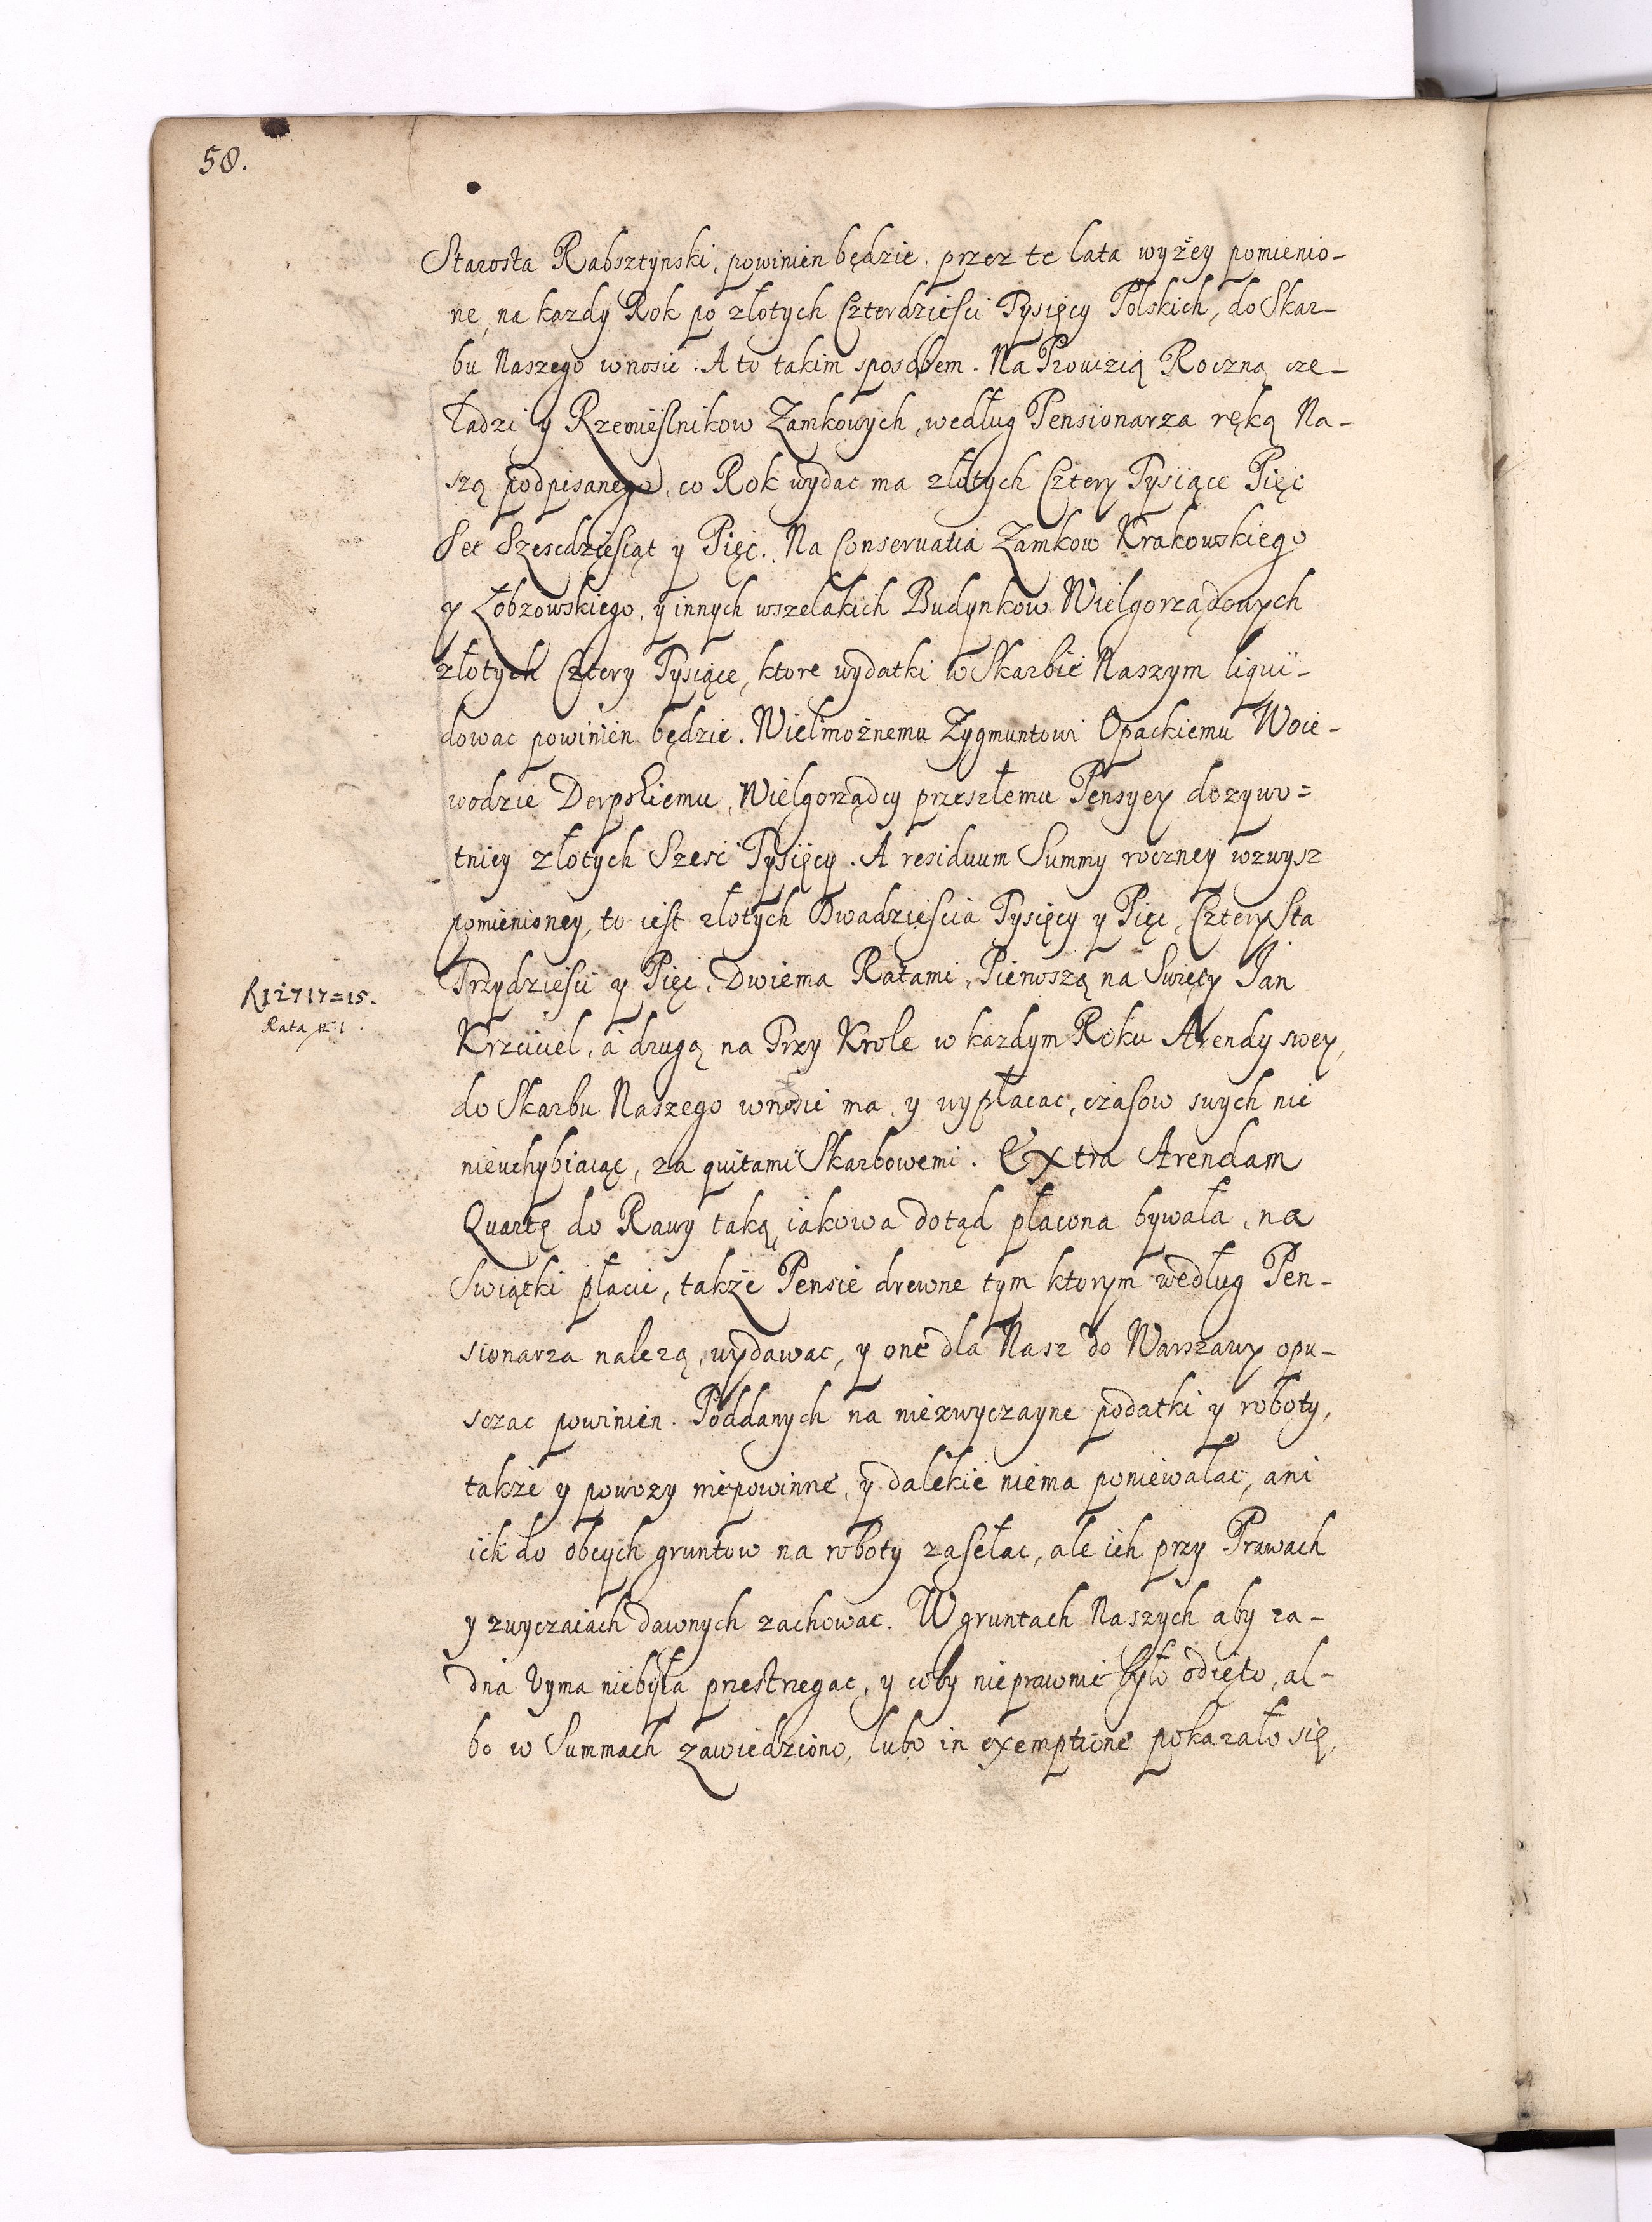 58.
Starosta Rabsztynski, powinien będzie, przez te lata wyżey pomienio-
ne, na kazdy Rok po złotych Czterdzieści Tysięcy Polskich, do Skar-
bu Naszego wnosic. A to takim sposobem. Na Prowizią Roczną cze-
ładzi y Rzemieslnikow Zamkowych, według Pensionarza ręką Na-
szą podpisanego, co Rok wydac ma złotych Cztery Tysiące Pięc
Set Szescdziesiąt y Pięc. Na Conseruatia Zamkow Krakowskiego
y Łobzowskiego, y innych wszelakich Budynkow Wielgorządowych
złotych Cztery Tysiące, ktore wydatki w Skarbie Naszym liqui-
dowac powinien będzie. Wielmożnemu Zygmuntowi Opackiemu Woie-
wodzie Derpskiemu, Wielgorządcy przeszłemu Pensyey dozywo=
tniey złotych Szesc Tysięcy. A residuum Summy roczney wzwysz
pomienioney, to iest złotych Dwadzieścia Tysięcy y Pięc, Czterysta
Trzydzieści y Pięc, Dwiema Ratami, Pierwszą na Swięty Jan
R 12717=15.
Rata
Krzciciel, a drugą na Trzy Krole w kazdym Roku Arendy swey,
do Skarbu Naszego wnosic ma, y wypłacac, czasow swych nie
nieuchybiaiąc, za quitami Skarbowemi. Extra Arendam
Quartę do Rawy taką, iakowa dotąd płacona bywała, na
Swiątki płacic, także Pensie drewne tym ktorym według Pen-
sionarza nalezą, wydawac, y one dla Nasz do Warszawy opu-
sczac powinien. Poddanych na niezwyczayne podatki y roboty,
także y powozy niepowinne, y dalekie niema poniewalac, ani
ich do obcych gruntow na roboty zasełac, ale ich przy Prawach
y zwyczaiach dawnych zachowac. W gruntach Naszych aby za-
dna Vyma niebyła przestrzegac, y coby nieprawnie było odięto, al-
bo w Summach zawiedziono, lubo in exemptione pokazało się,